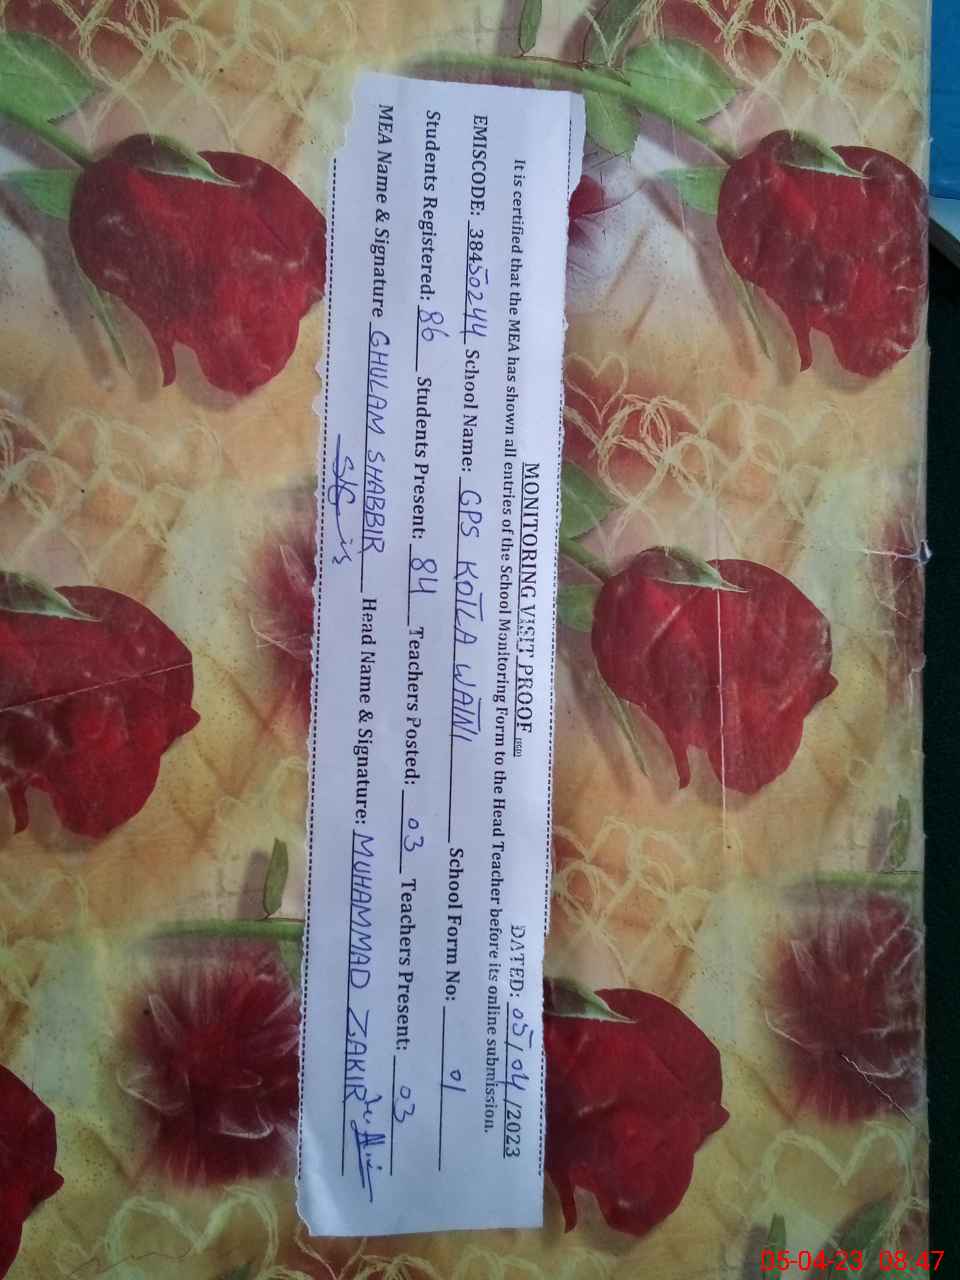 MONITORING VISIT PROOF
DATED: 05/04/2023
It is certified that the MEA has shown all entries of the School Monitoring Form to the Head Teacher before its online submission.
EMISCODE: 38450244 School Name: GPS KOTLA WATNI School Form No: 01
Students Registered: 86 Students Present: 84 Teachers Posted: 03 Teachers Present: 03
MEA Name & Signature GHULAM SHABBIR Head Name & Signature: MUHAMMAD ZAKIR
05-04-23 08:47